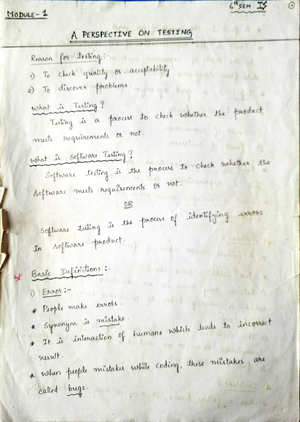 MODULE-1
6th SEM IS
1
A PERSPECTIVE ON TESTING
Reason for testing:-
1) To check quality or acceptability
2) To discover problems
What is Testing?
Testing is a process to check whether the product
meets requirements or not.
What is Software Testing?
Software testing is the process to check whether the
Software meets requirements or not.
OR
Software testing is the process of identifying errors
in software product.
Basic Definitions:-
1) Error:-
* People make errors.
* Synonym is mistake.
* It is interaction of humans which leads to incorrect
result.
* When people mistakes while coding, these mistakes are
called bugs.